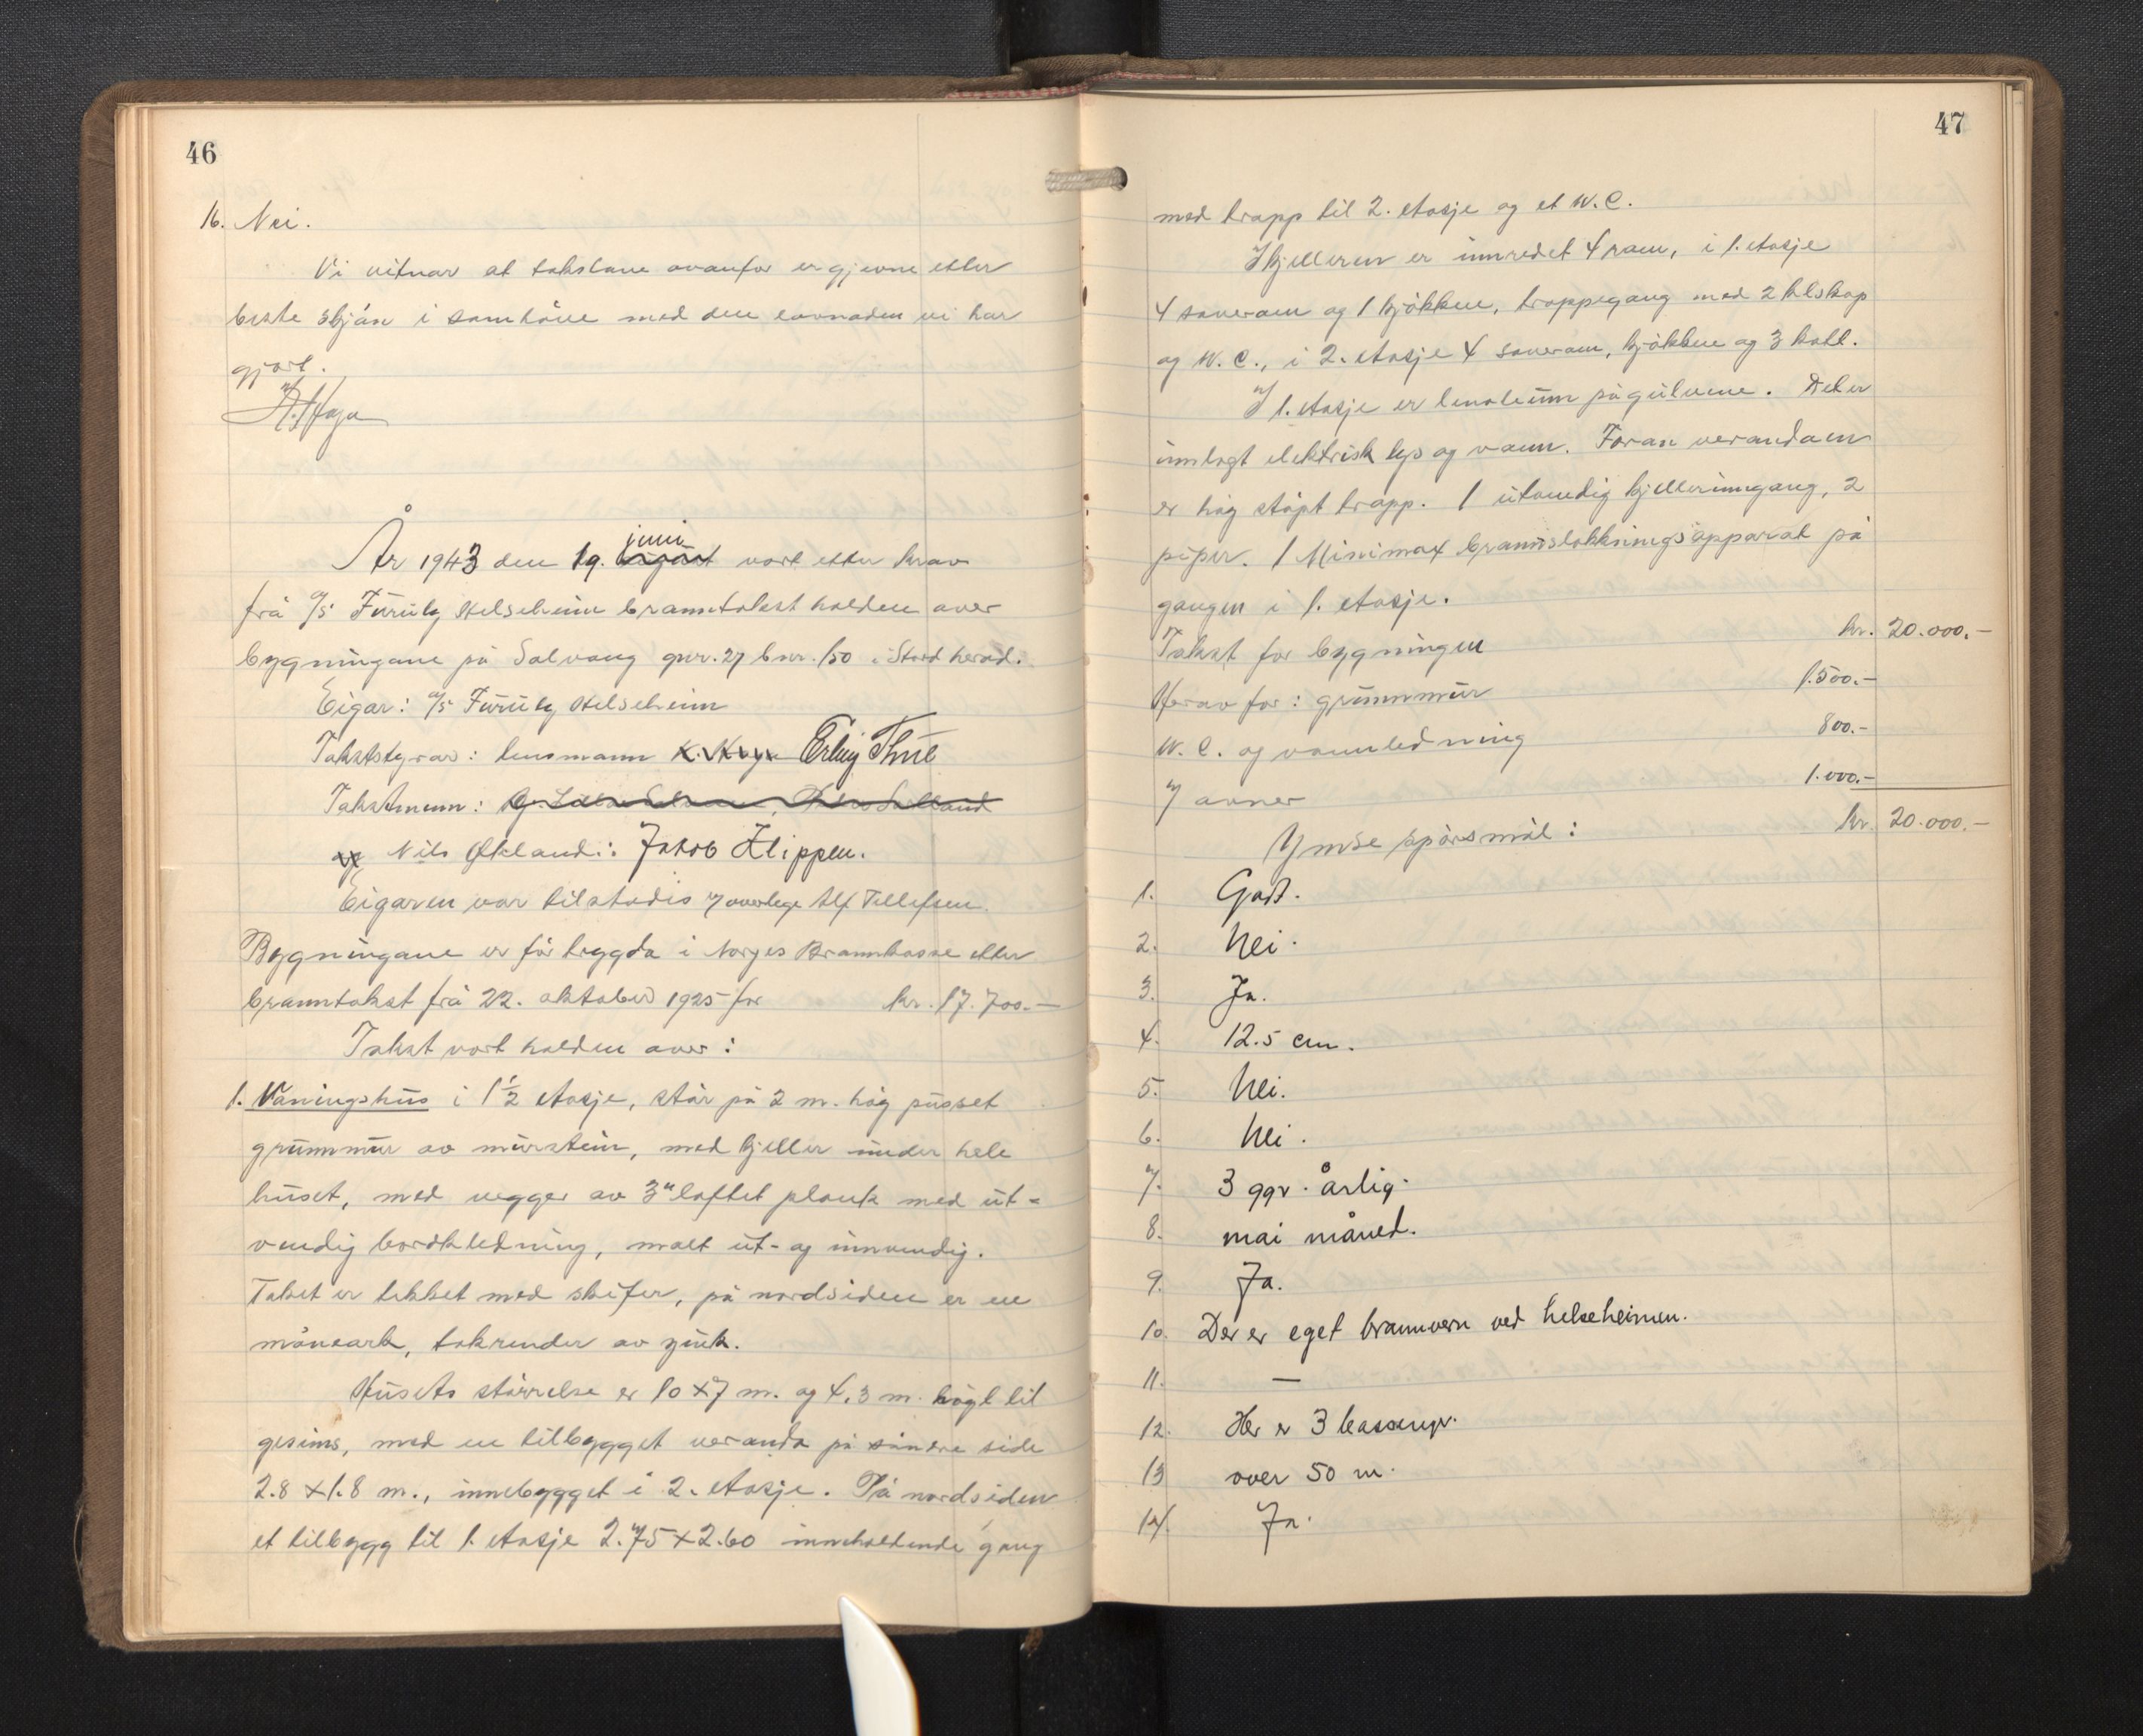 46
16. Nei.
Vi vitnar at takstane ovanfor er gjevne etter
beste skjøn i samhøve med den lovnaden vi har
gjort.
År 1943 den 19. juni vart etter krav
frå A/S Furuly Helseheim branntakst halden over
bygningane på Salvang gnr. 27 bnr. 150 i Stord herad.
Eigar: A/S Furuly Helseheim
Takststyrar: lensmann K. Haga Erling Thue
Takstmenn:
og Nils Økland: Jakob Klippen.
Eigaren var tilstades v/ overlege Alf Tellefsen.
Bygningane er før trygda i Norges Brannkasse etter
branntakst frå 22. oktober 1925 for kr. 17.700.—
Takst vart halden over:
1. Våningshus i 1 1/2 etasje, står på 2 m. høg pusset
grunnmur av murstein, med kjeller under hele
huset, med vegger av 3" laftet plank med ut-
vendig bordkledning, malt ut- og innvendig.
Taket er tekket med skifer, på nordsiden er en
møneark, takrender av zink.
Husets størrelse er 10 x 7 m. og 4.3 m. høgt til
gesims, med en tilbygget veranda på søndre side
2.8 x 1.8 m., innebygget i 2. etasje. På nordsiden
et tilbygg til 1. etasje 2.75 x 2.60 inneholdende gang
47
med trapp til 2. etasje og et W.C.
I kjelleren er innredet 4 rom, i 1. etasje
4 soverom og 1 kjøkken, trappegang med 2 klskap
og W.C., i 2. etasje 4 soverom, kjøkken og 3 kott.
I 1. etasje er linoleum på gulvene. Det er
innlagt elektrisk lys og vann. Foran verandaen
er høg støpt trapp. 1 utvendig kjellerinngang, 2
piper. 1 Minimax brannslokkningsapparat på
gangen i 1. etasje.
Takst for bygningen kr. 20.000.—
Herav for: grunnmur 1.500.—
W.C. og vannledning 800.—
7 ovner 1.000.—
kr. 20.000.—
Ymse spørsmål:
1. Godt.
2. Nei.
3. Ja.
4. 12.5 cm.
5. Nei.
6. Nei.
7. 3 ggr. årlig.
8. mai måned.
9. Ja.
10. Der er eget brannvern ved helseheimen.
11. —
12. Her er 3 bassenger.
13 over 50 m.
14. Ja.